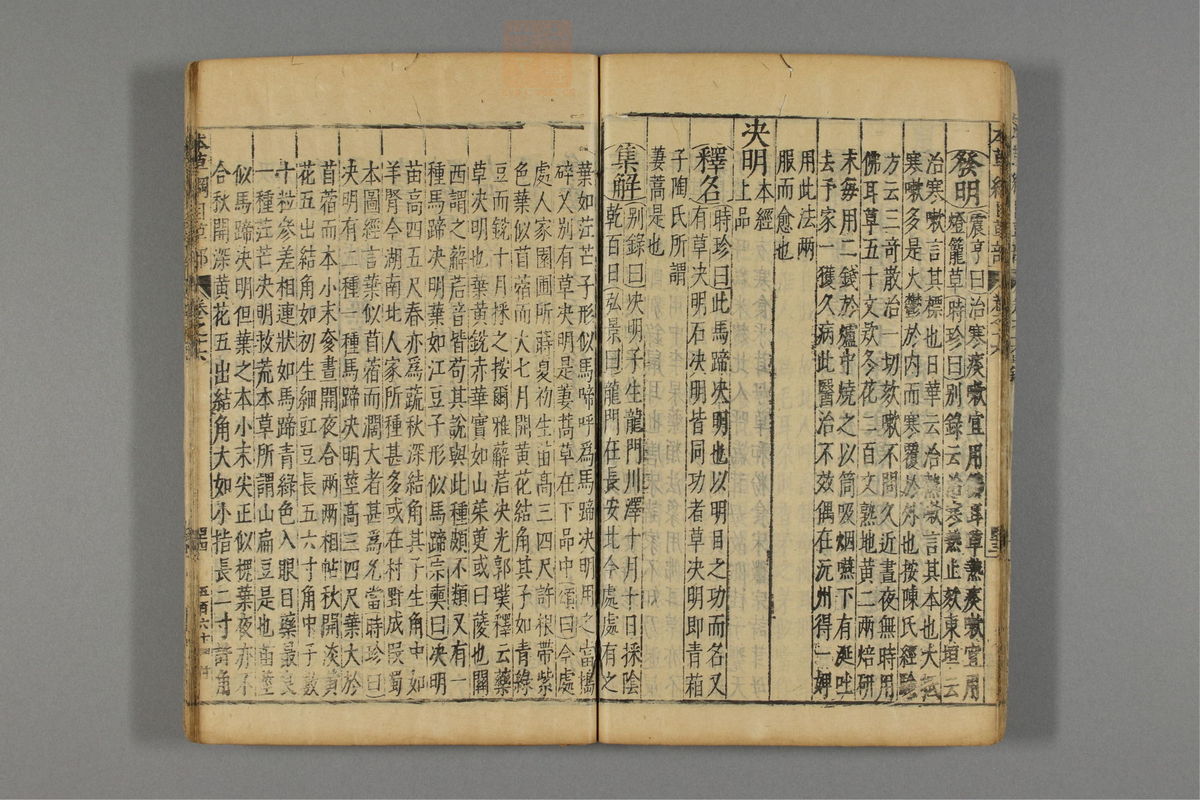 發明震亨曰治寒痰嗽宜用佛耳草熱痰嗽宜用
燈籠草時珍曰別錄云治寒熱止欬東垣云
治寒嗽言其標也日華云治熱嗽言其本也大抵
寒嗽多是火鬱於内而寒覆於外也按陳氏經驗
方云三竒散治一切欬嗽不問久近晝夜無時用
佛耳草五十文欵冬花二百文熟地黄二兩焙研
末每用二錢於爐中燒之以筒吸烟嚥下有涎吐
去予家一獲久病此醫治不效偶在沅州得一婢
用此法兩
服而愈也
决明本經
上品
釋名時珍曰此馬蹄决明也以明目之功而名又
有草决明石决明皆同功者草决明即青葙
子陶氏所謂
萋蒿是也
集解别錄曰决明子生龍門川澤十月十日採陰
乾百日弘景曰龍門在長安北今處處有之
葉如茳芒子形似馬啼呼爲馬蹄决明用之當擣
碎又别有草决明是萋蒿草在下品中頌曰今處
處人家園圃所蒔夏初生苗高三四尺許根帶紫
色葉似苜蓿而大七月開黄花結角其子如青綠
豆而銳十月採之按爾雅薢茩决光郭璞釋云藥
草决明也葉黄銳赤華實如山茱萸或曰䔖也關
西謂之薢茩音皆苟其說與此種頗不類又有一
種馬蹄决明葉如江豆子形似馬蹄宗奭曰决明
苗高四五尺春亦爲蔬秋深結角其子生角中如
羊腎今湖南北人家所種甚多或在村野成叚蜀
本圖經言葉似苜蓿而濶大者甚爲允當時珍曰
决明有二種一種馬蹄决明莖高三四尺葉大於
苜蓿而本小末奓晝開夜合兩兩相帖秋開淡黄
花五出結角如初生細豇豆長五六寸角中子數
十粒參差相連狀如馬蹄青綠色入眼目藥最良
一種茳芒决明救荒本草所謂山扁豆是也苗莖
似馬蹄决明但葉之本小末尖正似槐葉夜亦不
合秋開深黄花五出結角大如小指長二寸許角
本草綱目草部 卷之十六